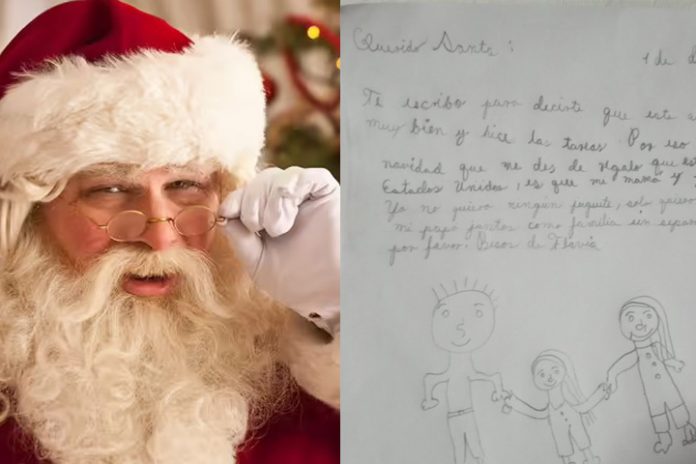 Querido Santa: 1 de d
Te escribo para decirte que este a
muy bien y hice las tareas. Por eso
navidad que me des de regalo que es
Estados Unidos, es que me mamá y
Yo no quiero ningún juguete, solo quiero
mi papá juntos como familia sin separa
por favor. Besos de Flavia